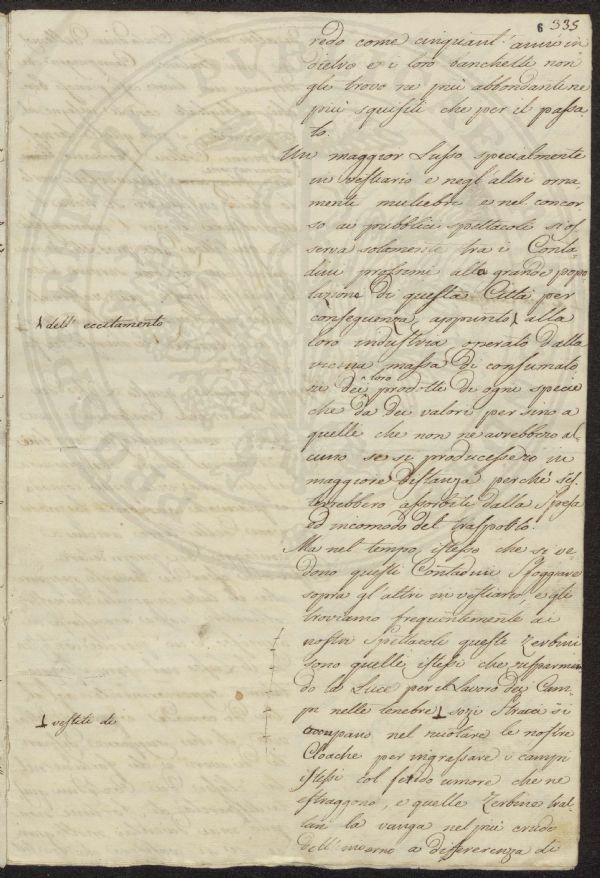 6 335
redo come cinquant' anni in
dietro e i loro banchetti non
gli trovo ne più abbondanti ne
più squisiti che per il passa
to.
Un maggior Lusso specialmente
in vestiario e negl' altri orna
menti muliebri e nel concor
so ai pubblici spettacoli si os
serva solamente tra i Conta
dini prossimi alla grande popo
lazione di questa Città per
conseguenza appunto alla
dell' eccitamento
loro industria operato dalla
vicina massa di consumato
ri dei loro prodotti di ogni specie
che dà dei valori per sino a
quelli che non ne avrebbero al
cuno se si producessero in
maggiore distanza perché
terrebbero assorbiti dalla spesa
ed incomodo del trasporto.
Ma nel tempo istesso che si ve
dono questi Contadini sfoggiare
sopra gl' altri in vestiario, e gli
troviamo frequentemente ai
nostri spettacoli questi Zerbini
sono quelli istessi che risparmian
do la Luce per il Lavoro dei Cam
pi nelle tenebre sozi stracci si
vestiti di
occupano nel vuotare le nostre
Cloache per ingrassare i campi
istessi col fetido umore che ne
estraggono, e quelle Zerbine trat
tan la vanga nel più crudo
dell' inverno a differenza di